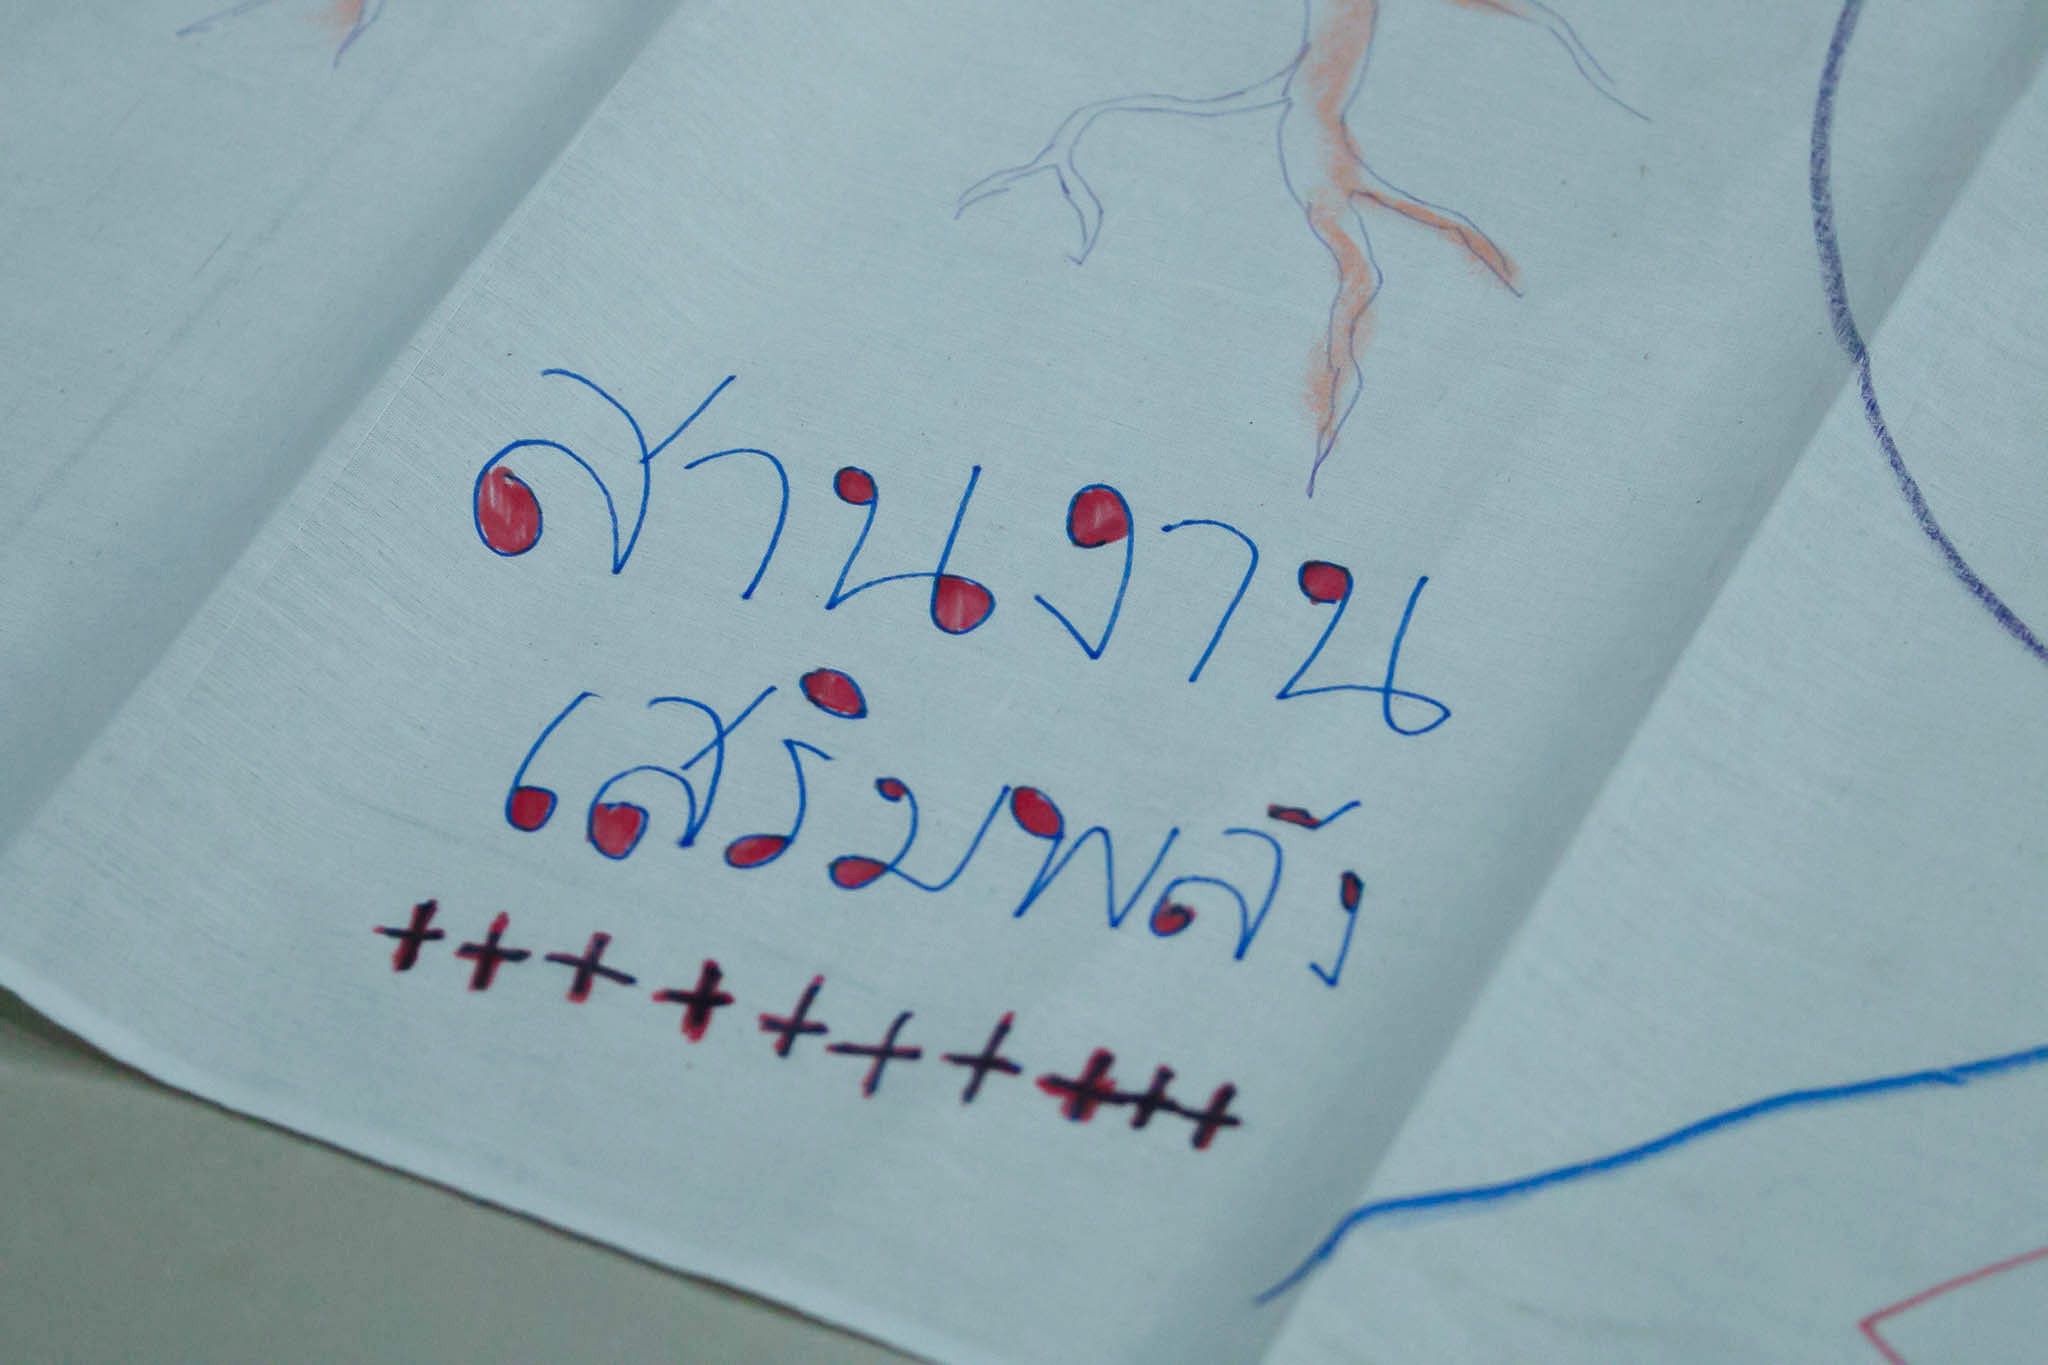 สานงาน
เสริมพลัง
++++++++++